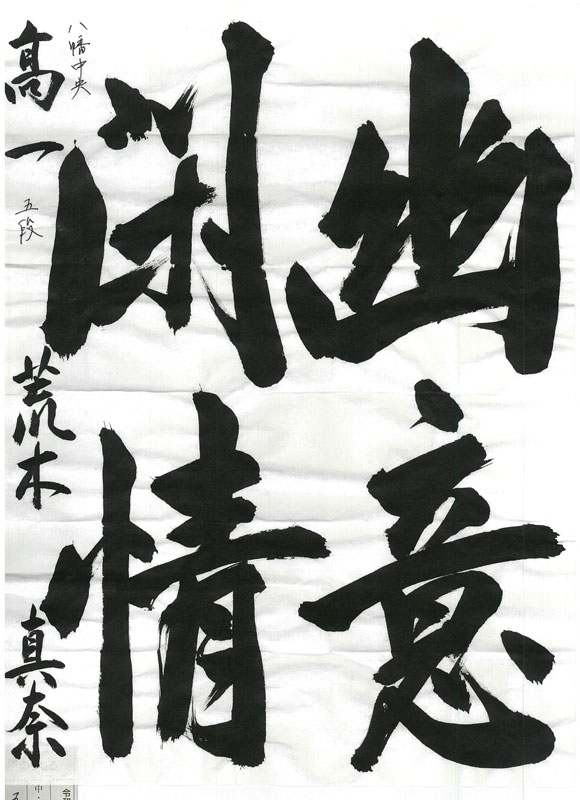 幽意
閑情
八幡中央
高一 五段 荒木 真奈